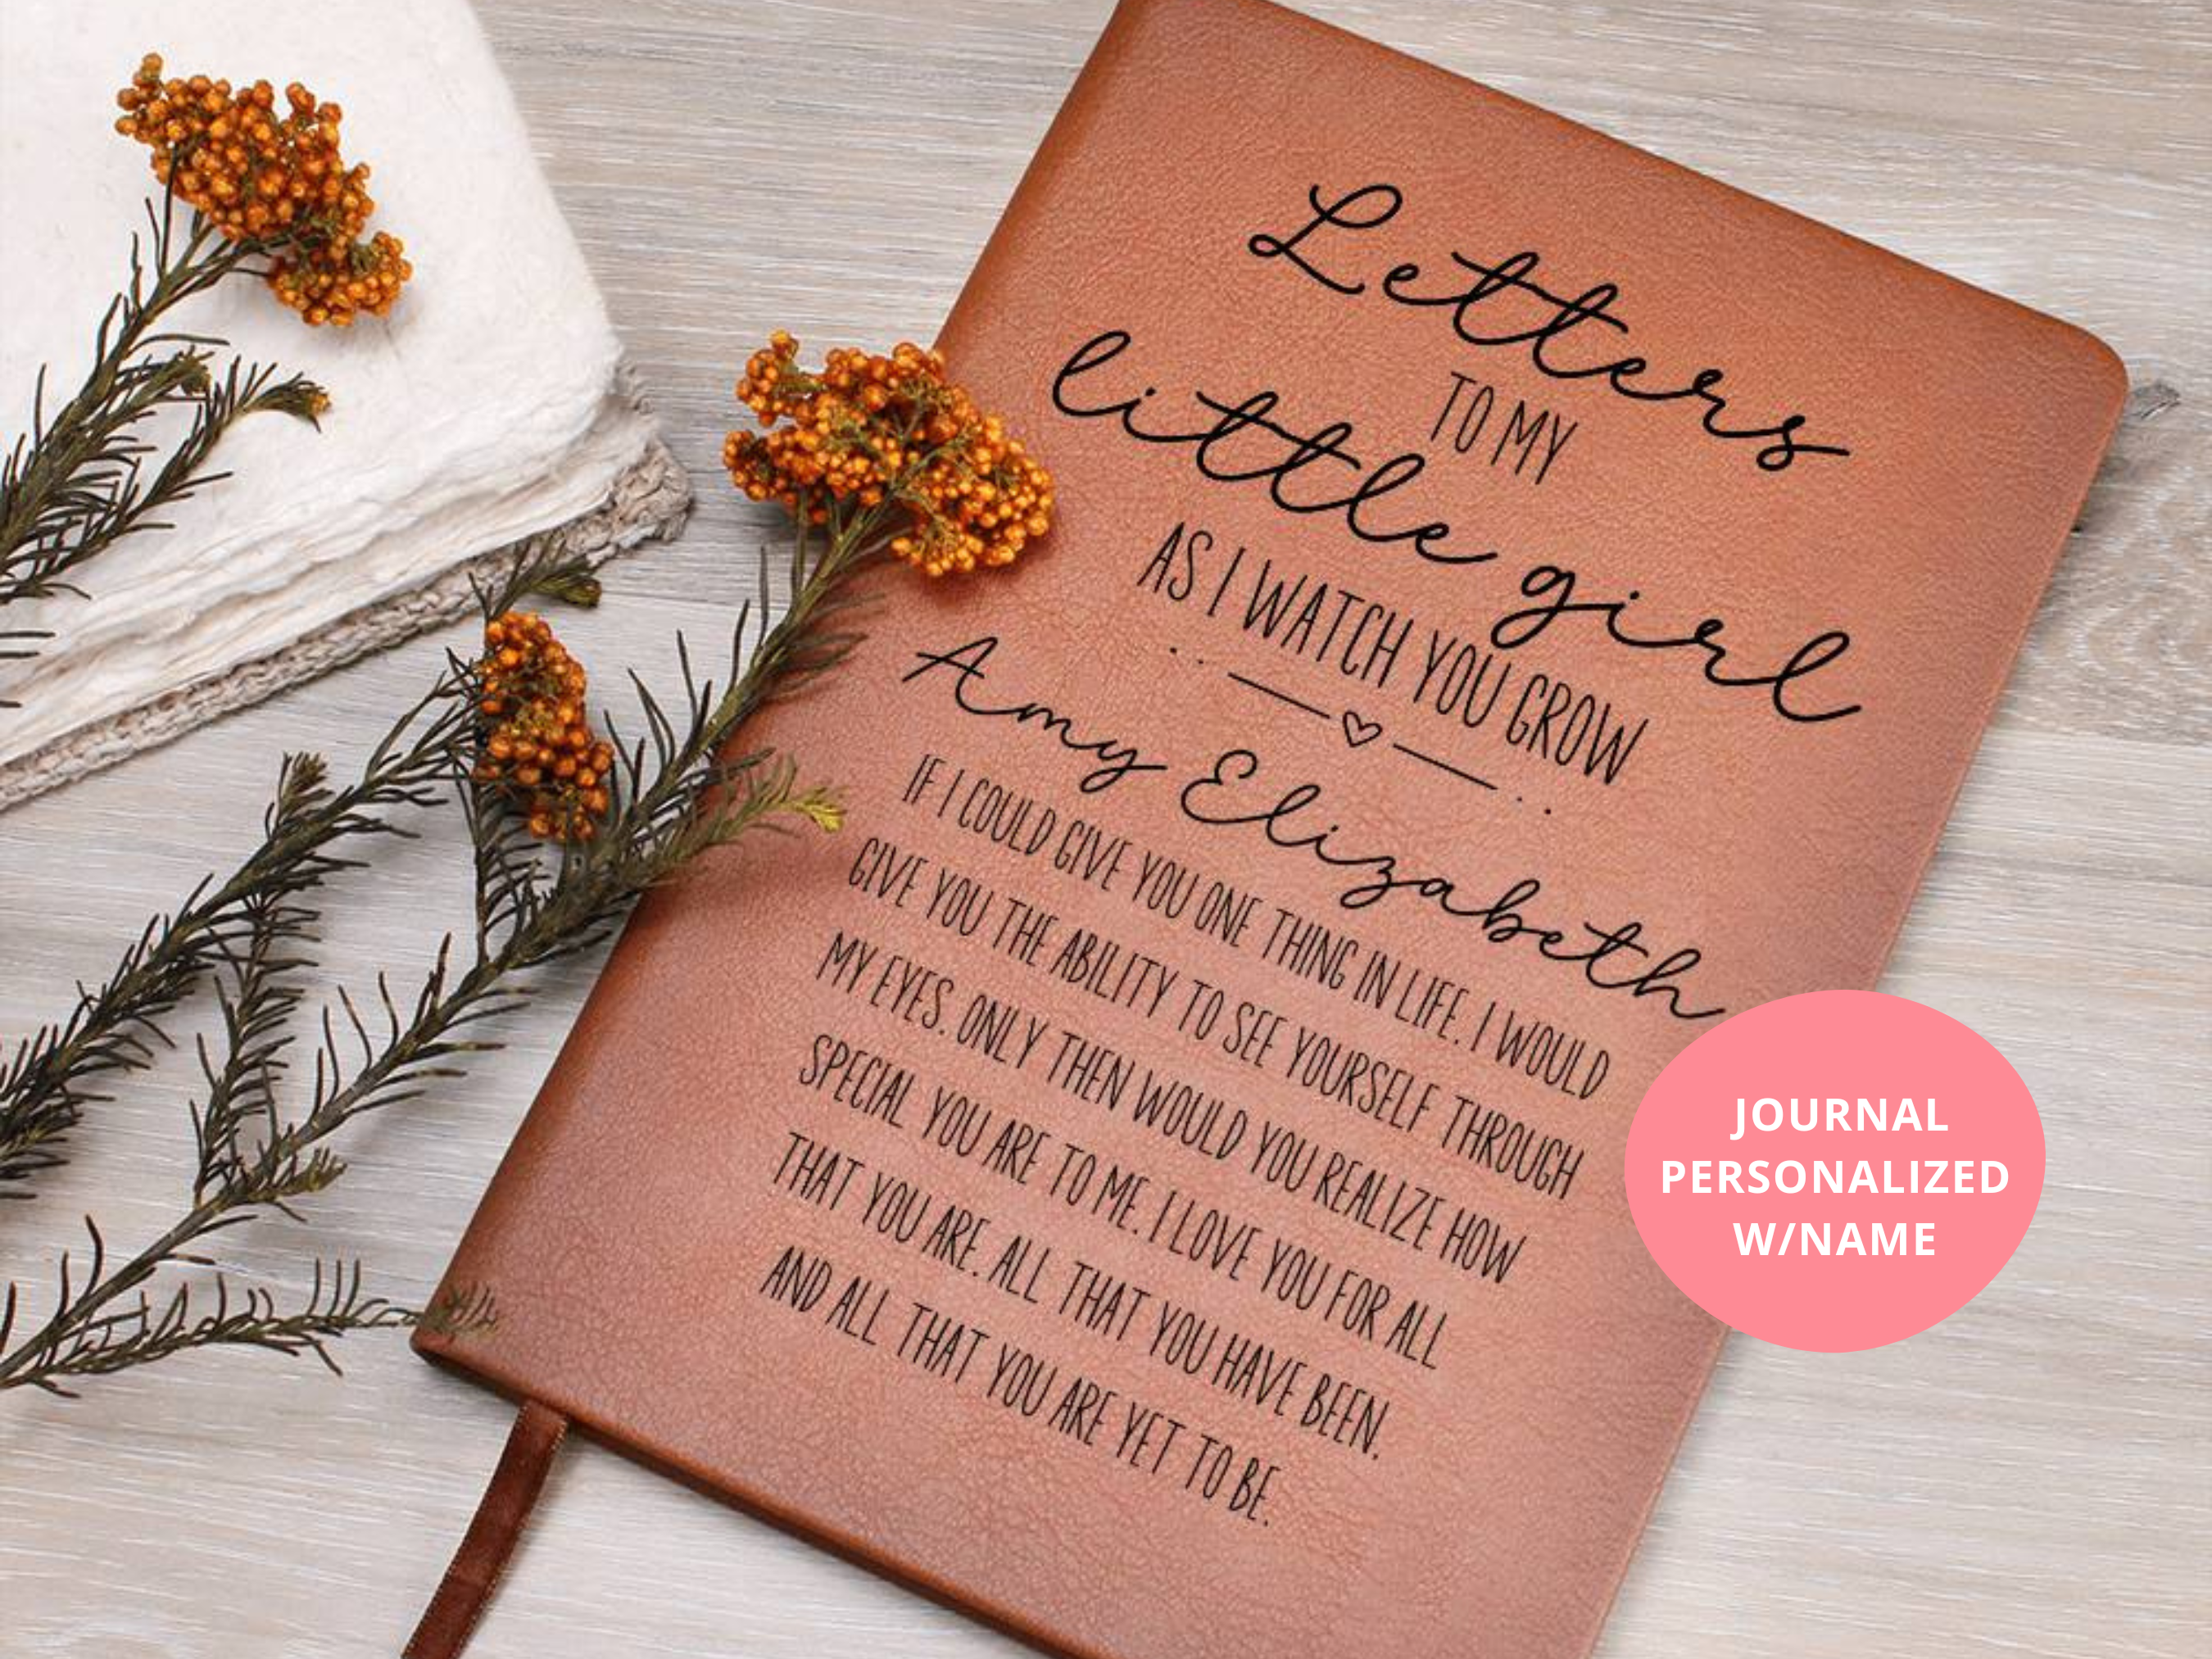 Letters
TO MY
little girl
AS I WATCH YOU GROW
Amy Elizabeth
IF I COULD GIVE YOU ONE THING IN LIFE. I WOULD
GIVE YOU THE ABILITY TO SEE YOURSELF THROUGH
MY EYES. ONLY THEN WOULD YOU REALIZE HOW
SPECIAL YOU ARE TO ME. I LOVE YOU FOR ALL
THAT YOU ARE. ALL THAT YOU HAVE BEEN.
AND ALL THAT YOU ARE YET TO BE.
JOURNAL
PERSONALIZED
W/NAME